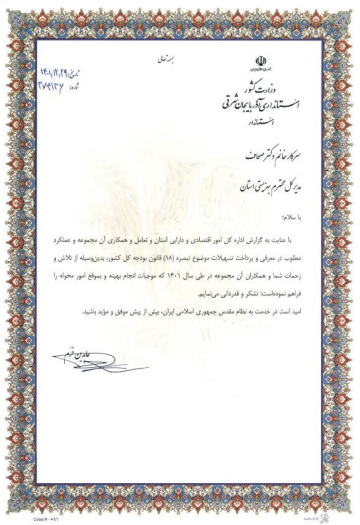 بسمه تعالی
جمهوری اسلامی ایران
وزارت کشور
استانداری آذربایجان شرقی
استاندار
تاریخ: ۱۴۰۱,۱۲,۲۹
شماره:
سرکار خانم دکتر صحاف
مدیرکل محترم بهزیستی استان
با سلام؛
با عنایت به گزارش اداره کل امور اقتصادی و دارایی استان و تعامل و همکاری آن مجموعه و عملکرد
مطلوب در معرفی و پرداخت تسهیلات موضوع تبصره (۱۸) قانون بودجه کل کشور، بدین‌وسیله از تلاش و
زحمات شما و همکاران آن مجموعه در طی سال ۱۴۰۱ که موجبات انجام بهینه و بموقع امور محوله را
فراهم نموده‌است؛ تشکر و قدردانی می‌نمایم.
امید است در خدمت به نظام مقدس جمهوری اسلامی ایران، بیش از پیش موفق و مؤید باشید.
عابدین خرم